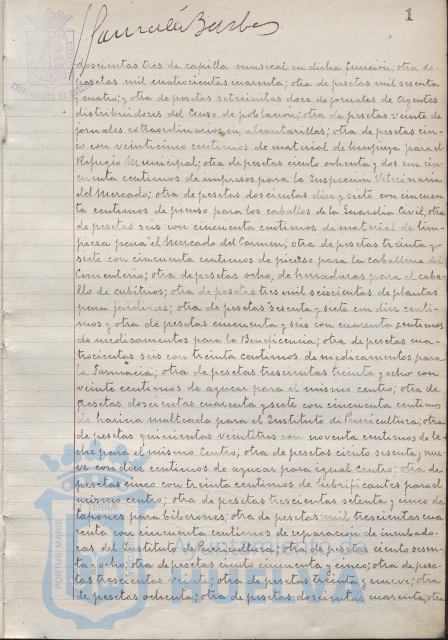 González Barba
1
doscientas tres de capilla musical en dicha función; otra de
pesetas mil cuatrocientas cuarenta; otra de pesetas mil sesenta
y cuatro; y otra de pesetas setecientas doce de jornales de Agentes
distribuidores del Censo de poblacion; otra de pesetas veinte de
jornales extraordinarios en alcantarillas; otra de pesetas cin-
co con veinticinco centimos de material de limpieza para el
Refugio Municipal; otra de pesetas ciento ochenta y dos con cin-
cuenta centimos de impresos para la Inspección Veterinaria
del Mercado; otra de pesetas doscientas diez y siete con cincuen
ta centimos de pienso para los caballos de la Guardia Civil, otra
de pesetas seis con cincuenta centimos de material de lim-
pieza para el Mercado del Carmen; otra de pesetas treinta y
siete con cincuenta centimos de pienso para la caballeria del
Cementerio; otra de pesetas ocho, de herraduras para el caba-
llo de cubitrios; otra de pesetas tres mil seiscientas de plantas
para jardines; otra de pesetas sesenta y siete con diez centi-
mos y otra de pesetas cincuenta y seis con cuarenta centimos
de medicamentos para la Beneficencia; otra de pesetas cua-
trocientas seis con treinta centimos de medicamentos para
la Farmacia; otra de pesetas trescientas treinta y ocho con
veinte centimos de azucar para el mismo centro; otra de
pesetas doscientas cuarenta y siete con cincuenta centimos
de harina malteada para el Instituto de Puericultura; otra
de pesetas quinientas veintitres con noventa centimos de le-
che para el mismo Centro; otra de pesetas ciento sesenta y nue-
ve con diez centimos de azucar para igual centro; otra de
pesetas cinco con treinta centimos de lubrificantes para el
mismo centro; otra de pesetas trescientas setenta y cinco de
tapones para biberones; otra de pesetas mil trescientas cua
renta con cincuenta centimos de reparacion de incubado-
ras, del Instituto de Puericultura; otra de pesetas ciento sesen-
ta y ocho; otra de pesetas ciento cincuenta y cinco; otra de pese-
tas trescientas veinte; otra de pesetas treinta y nueve; otra
de pesetas ochenta; otra de pesetas doscientas cuarenta; otra
PORTUS MARIS